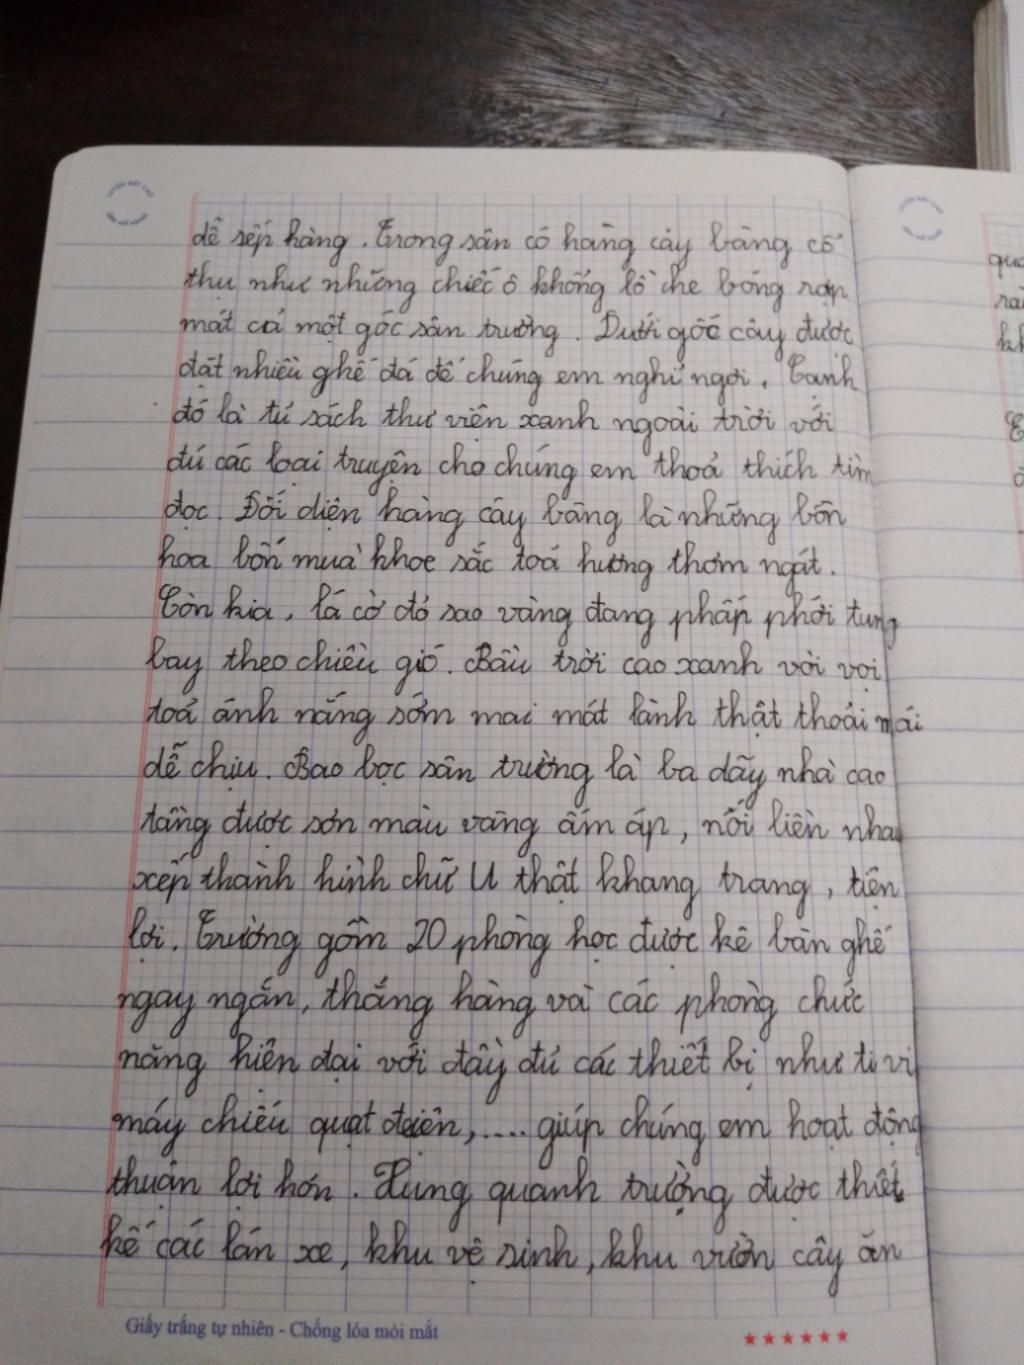 dễ sếp hàng. Trong sân có hàng cây bàng cổ
thụ như những chiếc ô khổng lồ che bóng rợp
mát cả một góc sân trường. Dưới gốc cây được
đặt nhiều ghế đá để chúng em nghỉ ngơi. Cạnh
đó là tủ sách thư viện xanh ngoài trời với
đủ các loại truyện cho chúng em thoả thích tìm
đọc. Đối diện hàng cây bàng là những bồn
hoa bốn mùa khoe sắc toả hương thơm ngát.
Còn kia, lá cờ đỏ sao vàng đang phấp phới tung
bay theo chiều gió. Bầu trời cao xanh vời vợi
toả ánh nắng sớm mai mát lành thật thoải mái
dễ chịu. Bao bọc sân trường là ba dãy nhà cao
tầng được sơn màu vàng ấm áp, nối liền nhau
xếp thành hình chữ U thật khang trang, tiện
lợi. Trường gồm 20 phòng học được kê bàn ghế
ngay ngắn, thẳng hàng và các phòng chức
năng hiện đại với đầy đủ các thiết bị như ti vi
máy chiếu quạt điện,.... giúp chúng em hoạt động
thuận lợi hơn. Xung quanh trường được thiết
kế các lán xe, khu vệ sinh, khu vườn cây ăn
Giấy trắng tự nhiên - Chống lóa mỏi mắt